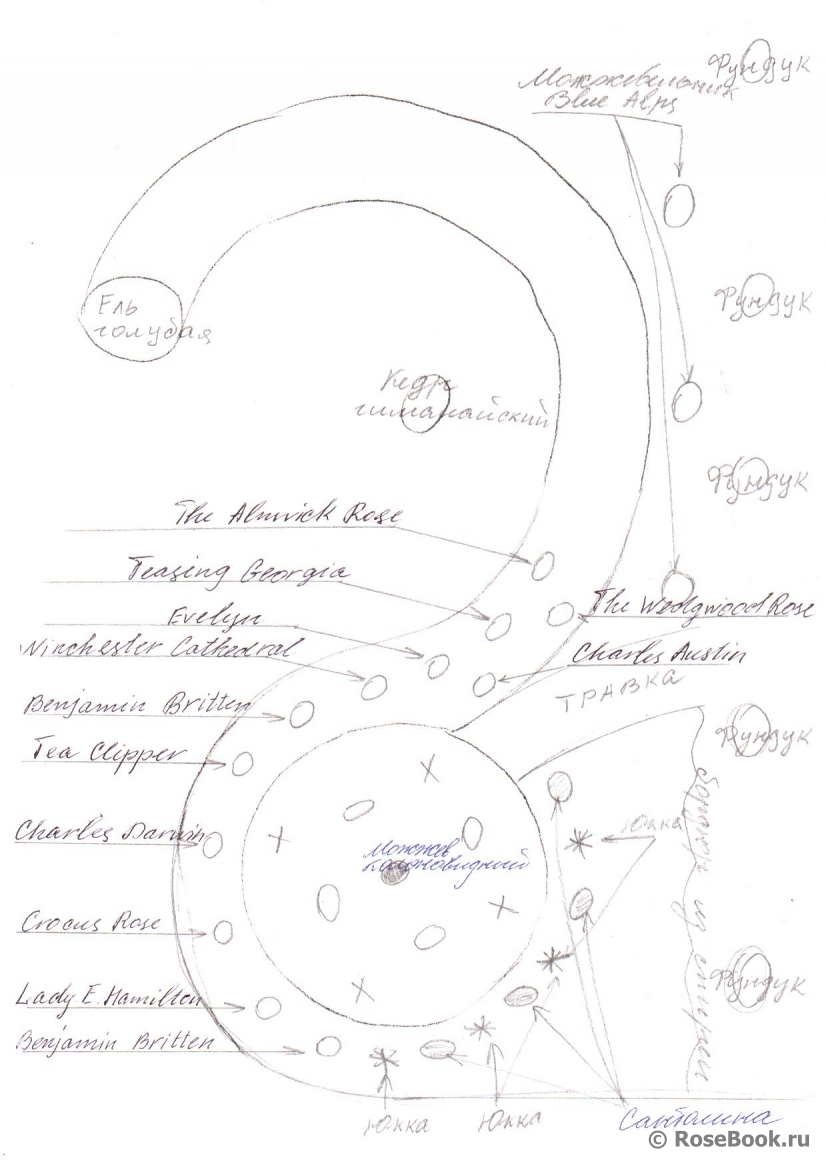 Фундук
Можжевельник
Blue Alps
Ель
голубая
Фундук
Кедр
гималайский
Фундук
The Alnwick Rose
Teasing Georgia
Evelyn
The Wedgwood Rose
Winchester Cathedral
Charles Austin
ТРАВКА
Benjamin Britten
Фундук
Tea Clipper
Юкка
Charles Darwin
Можжев
колоновидный
Бордюр из спиреи
Crocus Rose
Фундук
Lady E. Hamilton
Benjamin Britten
Юкка
Юкка
Сантолина
© RoseBook.ru